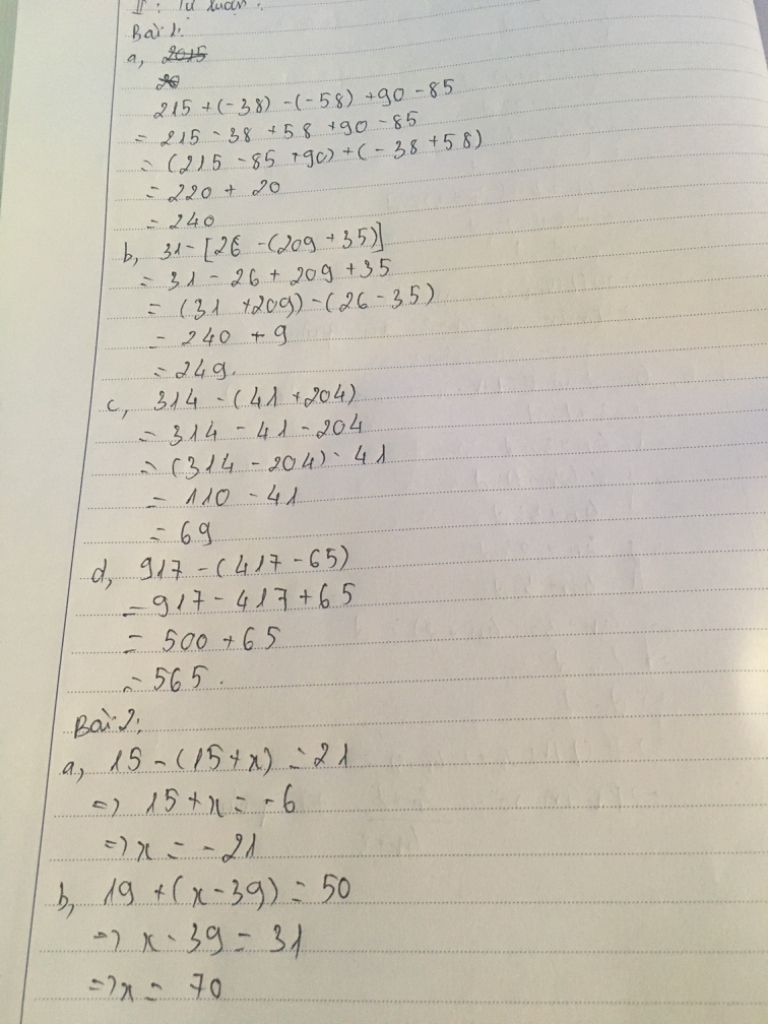 II : Tự luận :
Bài 1:
a, 2015
20
215 + (-38) - (-58) + 90 - 85
= 215 - 38 + 58 + 90 - 85
= (215 - 85 + 90) + (- 38 + 58)
= 220 + 20
= 240
b, 31 - [26 - (209 + 35)]
= 31 - 26 + 209 + 35
= (31 + 209) - (26 - 35)
= 240 + 9
= 249.
c, 314 - (41 + 204)
= 314 - 41 - 204
= (314 - 204) - 41
= 110 - 41
= 69
d, 917 - (417 - 65)
= 917 - 417 + 65
= 500 + 65
= 565.
Bài 2:
a, 15 - (15 + x) = 21
=> 15 + x = -6
=> x = -21
b, 19 + (x - 39) = 50
=> x - 39 = 31
=> x = 70